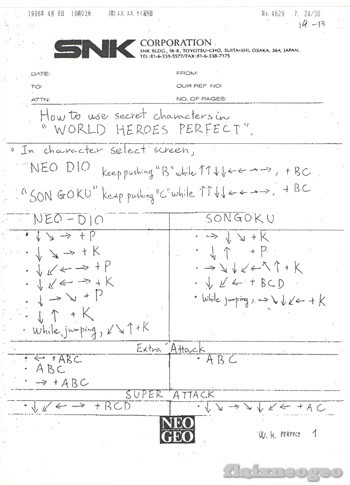 1996年4月9日 18時03分
No. 4629 P. 24/30
19-13
SNK CORPORATION
SNK BLDG., 18-8, TOYOTSU-CHO, SUITA-SHI, OSAKA, 564, JAPAN.
TEL:81-6-339-5577/FAX:81-6-338-7175
DATE: FROM:
TO: OUR REF. NO:
ATTN: NO. OF PAGES:
How to use secret characters in
"WORLD HEROES PERFECT".
In character select screen,
NEO DIO keep pushing "B" while ↑↑↓↓←←→→, +BC
"SON GOKU" keep pushing "C" while ↑↑↓↓←←→→, +BC
NEO-DIO SONGOKU
・↓↘→+P ・→↓↘+K
・↓↘→+K ・↓↑+P
・↓↙←→+P ・→↘↓↙←↖↑+K
・↓↙←→+K ・↓↙←+BCD
・→↓↘+P ・while jumping, →↘↓↙←+K
・↓↑+K
・while jumping, ↙↘↑+K
Extra Attack
・←+ABC ・ABC
・ABC
・→+ABC
SUPER ATTACK
・↓↙←→+BCD ・↓↘→↘↓↙←+AC
NEO
GEO
W.H. PERFECT 1
flaizneogeo